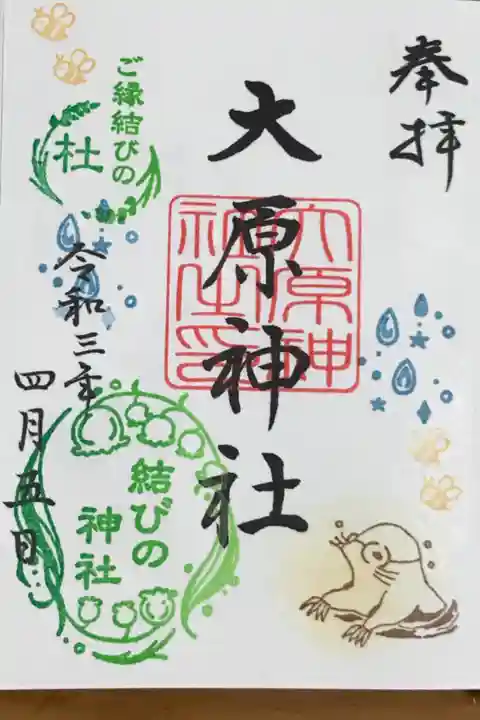 奉拝
大原神社
大原神
社之印
ご縁結びの
杜
令和三年
四月五日
結びの
神社